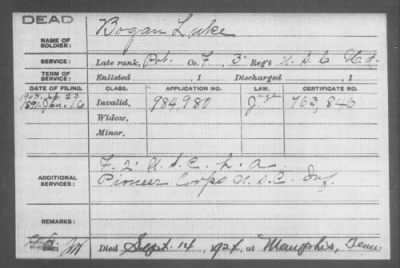 DEAD
NAME OF SOLDIER: Bogan Luke
SERVICE: Late rank, Pvt. Co. F, 3" Reg't U.S.C. H.A.
TERM OF SERVICE: Enlisted , 1 Discharged , 1
DATE OF FILING. CLASS. APPLICATION NO. LAW. CERTIFICATE NO.
1891 Jan. 16 Invalid, 984,980 763,840
Widow,
Minor,
ADDITIONAL SERVICES: F. 2" U.S.C. L.A.
Pioneer Corps U.S.C. Inf.
REMARKS:
Died Sept. 14, 192 , at Memphis, Tenn